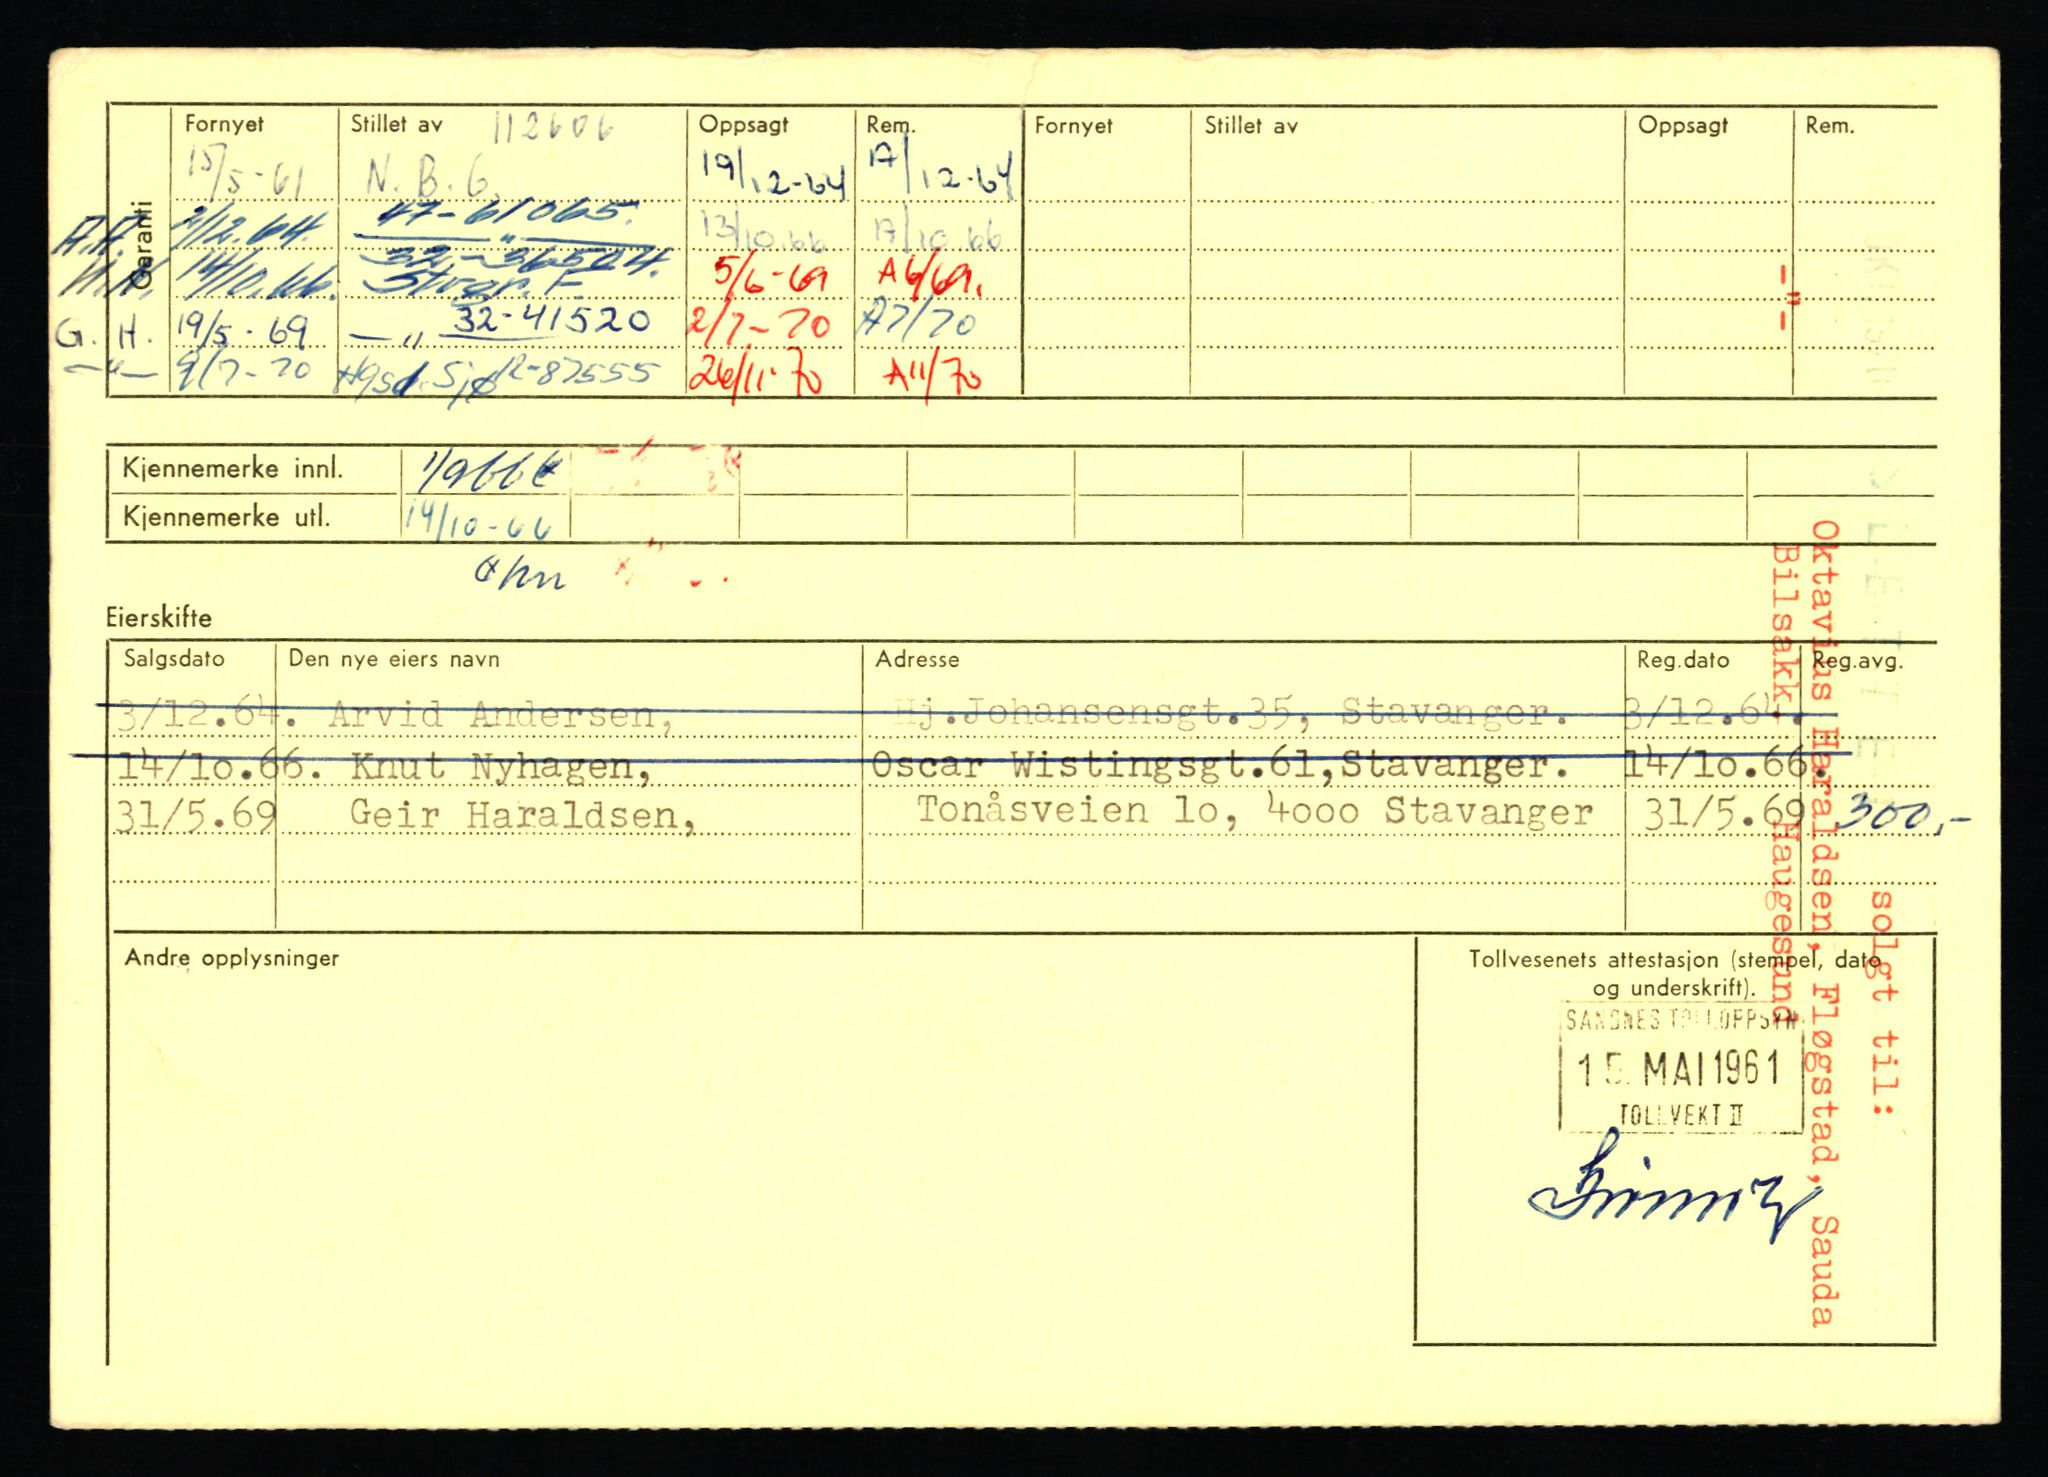 Garanti
Fornyet Stillet av 112606 Oppsagt Rem. Fornyet Stillet av Oppsagt Rem.
15/5-61 N. B. G. 19/12-64 A/12-64
A.A. 2/12.64. 47-61065. 13/10.66 A/10 66
14/10.66. 32-36524. Stvgr. F. 5/6-69 A6/69.
G. H. 19/5-69 —"— 32-41520 2/7-70 A7/70
—"— 9/7-70 Hgsd. Sjø R-87555 26/11-70 A11/70
Kjennemerke innl. 1/966
Kjennemerke utl. 14/10-66
Eierskifte
Salgsdato Den nye eiers navn Adresse Reg.dato Reg.avg.
3/12.64. Arvid Andersen, Hj.Johansensgt.35, Stavanger. 3/12.64.
14/10.66. Knut Nyhagen, Oscar Wistingsgt.61,Stavanger. 14/10.66.
31/5.69 Geir Haraldsen, Tonåsveien 10, 4000 Stavanger 31/5.69 300,-
Andre opplysninger
Tollvesenets attestasjon (stempel, dato
og underskrift).
SANDNES TOLLOPPSYN
15. MAI 1961
TOLLVEKT II
solgt til:
Oktavius Haraldsen, Fløgstad, Sauda
Bilsakk. Haugesund